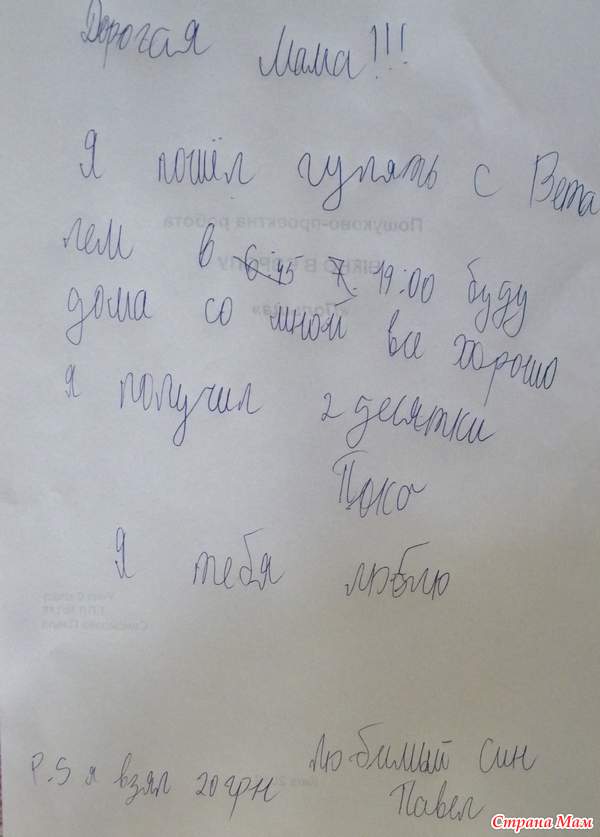 Дорогая Мама!!!
Я пошёл гулять с Вета
лем в 6:45 7. 19:00 буду
дома со мной все хорошо
я получил 2 десятки
Пока
Я тебя люблю
Любимый син
P.S я взял 20грн
Павел
Пошуково-проектна робота
Страна Мам